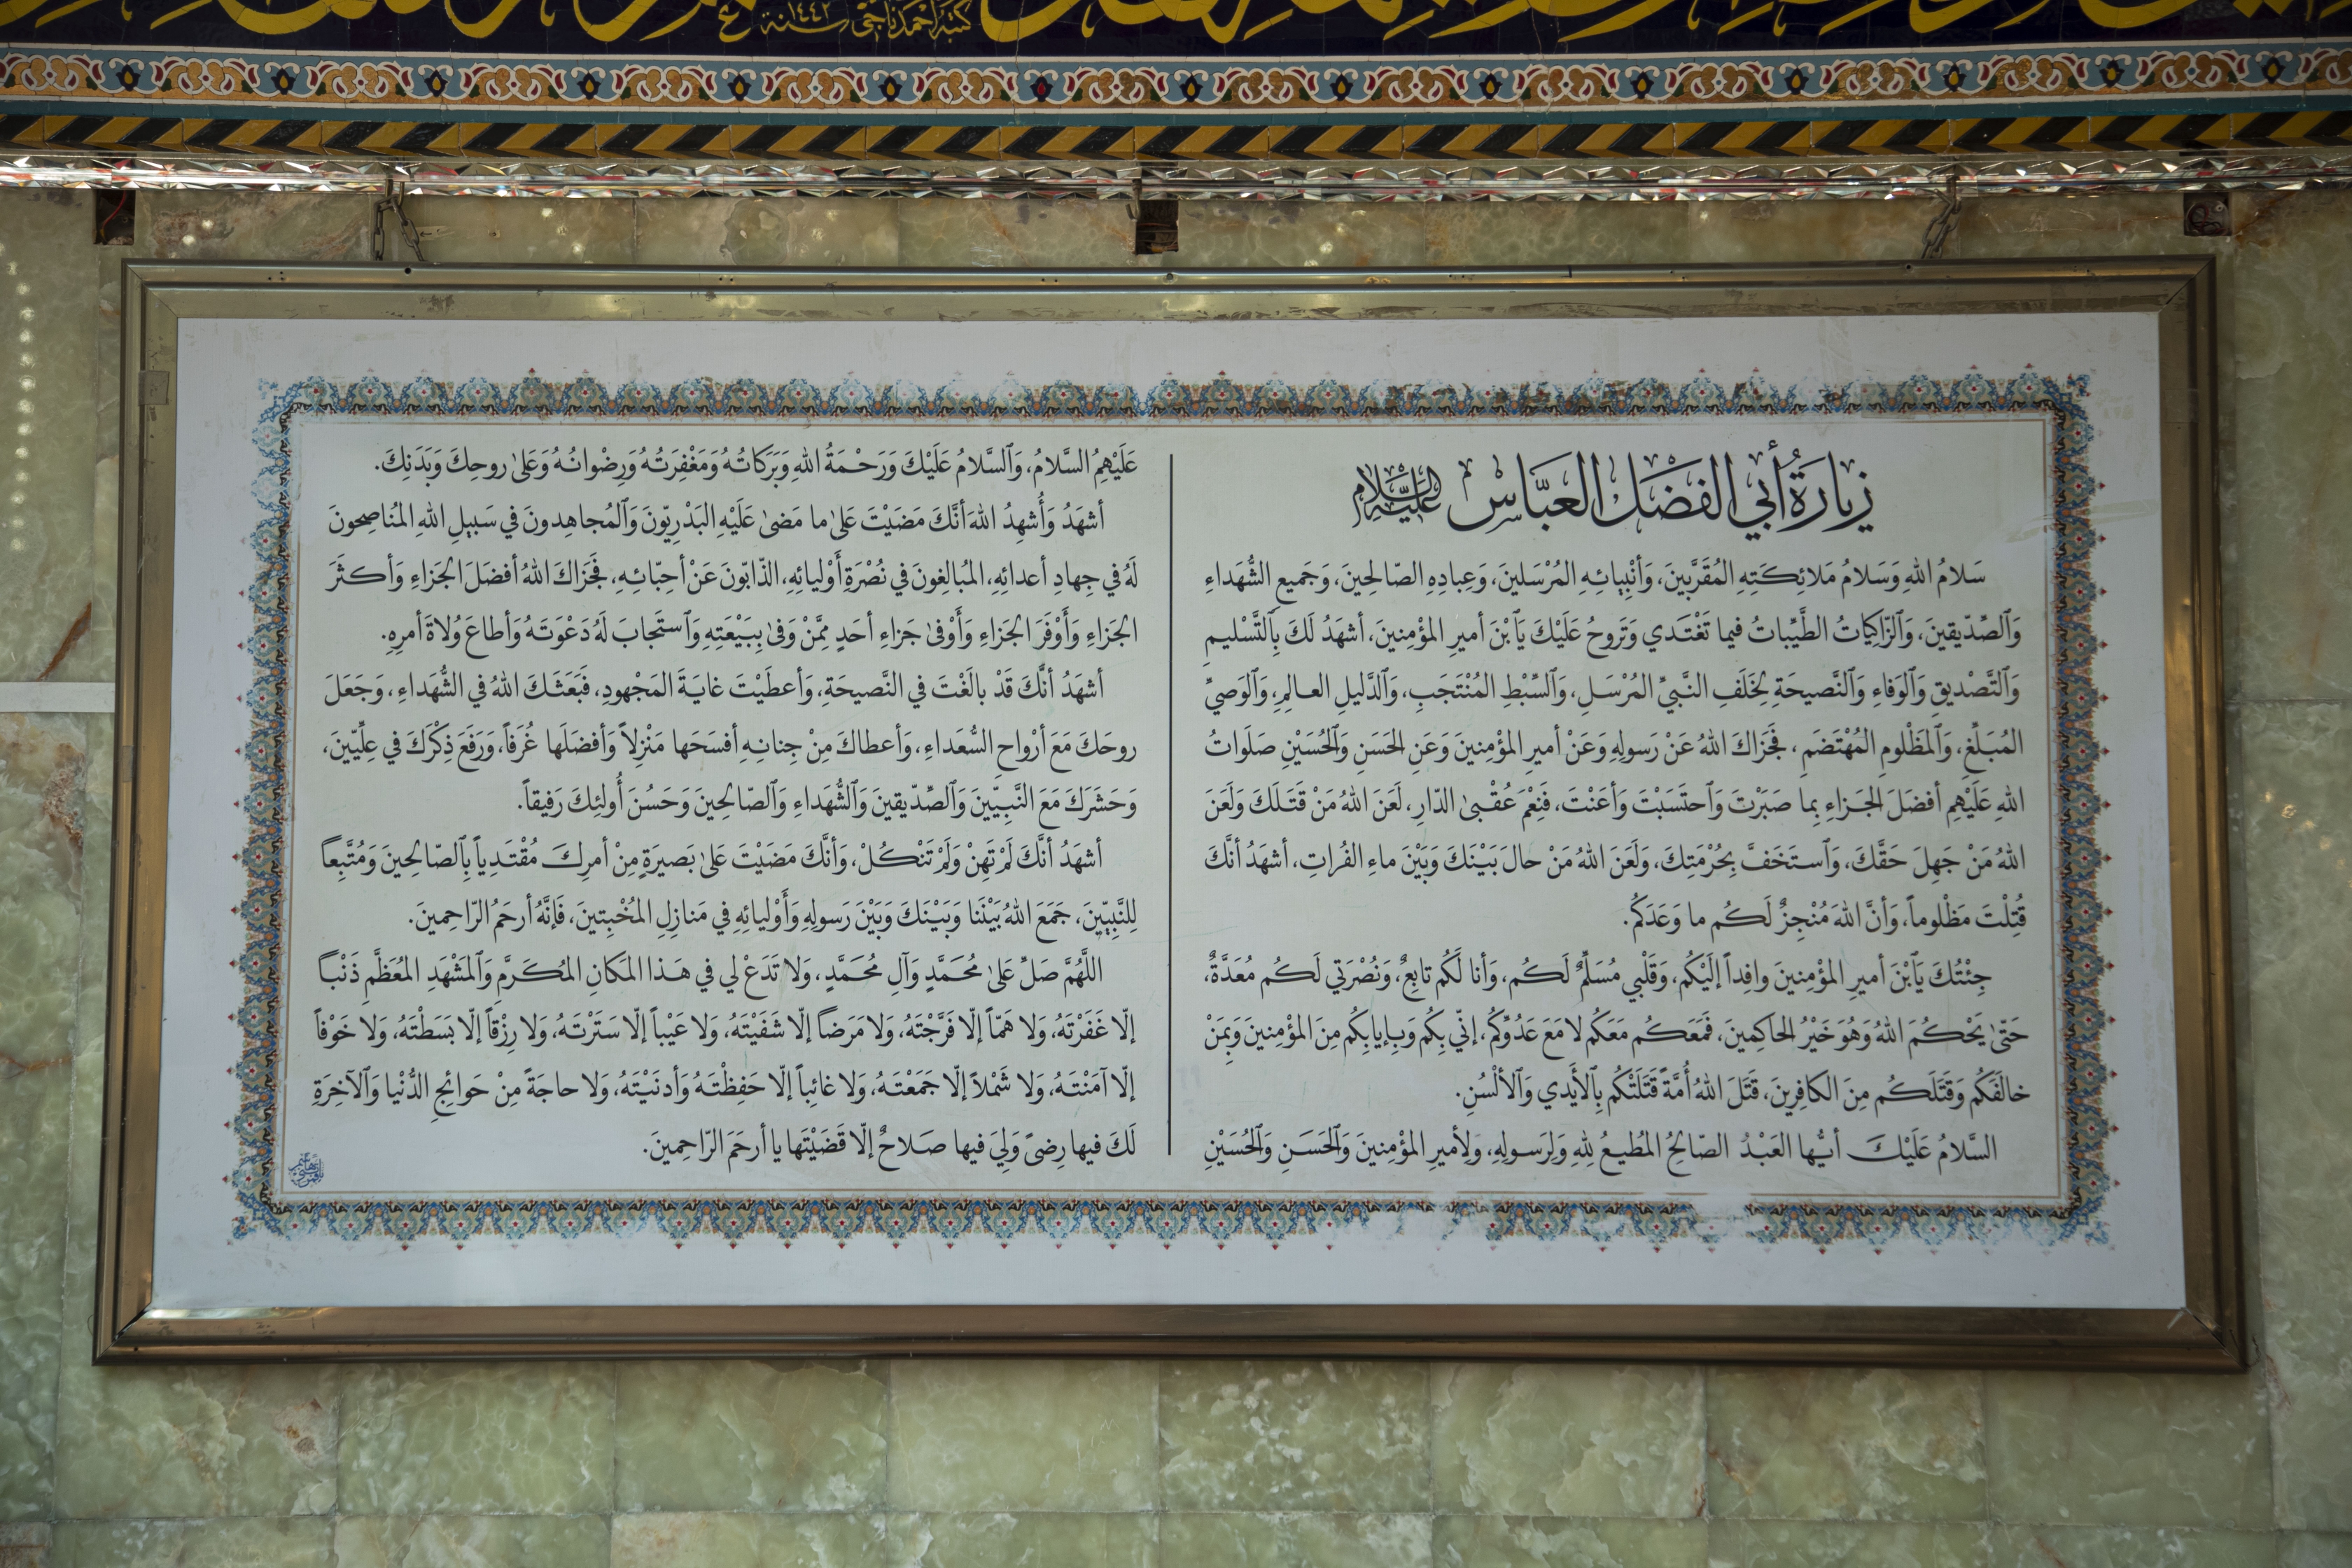 كتبه احمد ناجي سنة ١٤٤٢
زِيارَةُ أَبي الفَضْلِ العَبّاسِ عَلَيْهِ السَّلامُ
سَلامُ اللهِ وَسَلامُ مَلائِكَتِهِ المُقَرَّبينَ، وَأَنْبِيائِهِ المُرْسَلينَ، وَعِبادِهِ الصّالِحينَ، وَجَميعِ الشُّهَداءِ
وَٱلصِّدّيقينَ، وَٱلزّاكِياتُ الطَّيِّباتُ فيما تَغْتَدي وَتَروحُ عَلَيْكَ يَٱ بْنَ أميرِ المؤْمِنينَ، أشهَدُ لَكَ بِٱلتَّسْليمِ
وَٱلتَّصْديقِ وَٱلوَفاءِ وَٱلنَّصيحَةِ لِخَلَفِ النَّبيِّ المُرْسَلِ، وَٱلسِّبْطِ المُنْتَجَبِ، وَٱلدَّليلِ العالِمِ، وَٱلوَصيِّ
المُبَلِّغِ، وَٱلمَظْلومِ المُهْتَضَمِ، فَجَزاكَ اللهُ عَنْ رَسولِهِ وَعَنْ أميرِ المؤْمِنينَ وَعَنِ الحَسَنِ وَٱلحُسَيْنِ صَلَواتُ
اللهِ عَلَيْهِم أفضَلَ الجَزاءِ بِما صَبَرْتَ وَٱحتَسَبْتَ وَأعَنْتَ، فَنِعْمَ عُقْبىٰ الدّارِ، لَعَنَ اللهُ مَنْ قَتَلَكَ وَلَعَنَ
اللهُ مَنْ جَهِلَ حَقَّكَ، وَٱستَخَفَّ بِحُرْمَتِكَ، وَلَعَنَ اللهُ مَنْ حالَ بَيْنَكَ وَبَيْنَ ماءِ الفُراتِ، أشهَدُ أنَّكَ
قُتِلْتَ مَظْلوماً، وَأنَّ اللهَ مُنْجِزٌ لَكُم ما وَعَدَكُم.
جِئْتُكَ يَٱبْنَ أميرِ المؤْمِنينَ وافِداً إلَيْكُم، وَقَلْبي مُسَلِّمٌ لَكُم، وَأنا لَكُم تابِعٌ، وَنُصْرَتي لَكُم مُعَدَّةٌ،
حَتّىٰ يَحْكُمَ اللهُ وَهُوَ خَيْرُ الحاكِمينَ، فَمَعَكُم مَعَكُم لا مَعَ عَدُوِّكُم، إنّي بِكُم وَبِإيابِكُم مِنَ المؤْمِنينَ وَبِمَنْ
خالَفَكُم وَقَتَلَكُم مِنَ الكافِرينَ، قَتَلَ اللهُ أُمَّةً قَتَلَتْكُم بِٱلأَيْدي وَٱلألْسُنِ.
السَّلامُ عَلَيْكَ أيُّها العَبْدُ الصّالِحُ المُطيعُ لِلّٰهِ وَلِرَسولِهِ، وَلِأميرِ المؤْمِنينَ وَٱلحَسَنِ وَٱلحُسَيْنِ
عَلَيْهِمُ السَّلامُ، وَٱلسَّلامُ عَلَيْكَ وَرَحْمَةُ اللهِ وَبَرَكاتُهُ وَمَغْفِرَتُهُ وَرِضْوانُهُ وَعَلىٰ روحِكَ وَبَدَنِكَ.
أشهَدُ وَأُشهِدُ اللهَ أنَّكَ مَضَيْتَ عَلىٰ ما مَضىٰ عَلَيْهِ البَدْرِيّونَ وَٱلمُجاهِدونَ في سَبيلِ اللهِ المُناصِحونَ
لَهُ في جِهادِ أعدائِهِ، المُبالِغونَ في نُصْرَةِ أَوْليائِهِ، الذّابّونَ عَنْ أحِبّائِهِ، فَجَزاكَ اللهُ أفضَلَ الجَزاءِ وَأكثَرَ
الجَزاءِ وَأَوْفَرَ الجَزاءِ وَأَوْفىٰ جَزاءِ أحَدٍ مِمَّنْ وَفىٰ بِبَيْعَتِهِ وَٱستَجابَ لَهُ دَعْوَتَهُ وَأطاعَ وُلاةَ أمرِهِ.
أشهَدُ أنَّكَ قَدْ بالَغْتَ في النَّصيحَةِ، وَأعطَيْتَ غايَةَ المَجْهودِ، فَبَعَثَكَ اللهُ في الشُّهَداءِ، وَجَعَلَ
روحَكَ مَعَ أرْواحِ السُّعَداءِ، وَأعطاكَ مِنْ جِنانِهِ أفسَحَها مَنْزِلاً وَأفضَلَها غُرَفاً، وَرَفَعَ ذِكْرَكَ في عِلِّيّينَ،
وَحَشَرَكَ مَعَ النَّبِيّينَ وَٱلصِّدّيقينَ وَٱلشُّهَداءِ وَٱلصّالِحينَ وَحَسُنَ أُولئِكَ رَفيقاً.
أشهَدُ أنَّكَ لَمْ تَهِنْ وَلَمْ تَنْكُلْ، وَأنَّكَ مَضَيْتَ عَلىٰ بَصيرَةٍ مِنْ أمرِكَ مُقْتَدِياً بِٱلصّالِحينَ وَمُتَّبِعاً
لِلنَّبِيّينَ، جَمَعَ اللهُ بَيْنَنا وَبَيْنَكَ وَبَيْنَ رَسولِهِ وَأَوْليائِهِ في مَنازِلِ المُخْبِتينَ، فَإنَّهُ أرحَمُ الرّاحِمينَ.
اللّهُمَّ صَلِّ عَلىٰ مُحَمَّدٍ وَآلِ مُحَمَّدٍ، وَلا تَدَعْ لي في هَذا المَكانِ المُكَرَّمِ وَٱلمَشْهَدِ المُعَظَّمِ ذَنْباً
إلّا غَفَرْتَهُ، وَلا هَمّاً إلّا فَرَّجْتَهُ، وَلا مَرَضاً إلّا شَفَيْتَهُ، وَلا عَيْباً إلّا سَتَرْتَهُ، وَلا رِزْقاً إلّا بَسَطْتَهُ، وَلا خَوْفاً
إلّا آمَنْتَهُ، وَلا شَمْلاً إلّا جَمَعْتَهُ، وَلا غائِباً إلّا حَفِظْتَهُ وَأدنَيْتَهُ، وَلا حاجَةً مِنْ حَوائِجِ الدُّنْيا وَٱلآخِرَةِ
لَكَ فيها رِضىً وَلِيَ فيها صَلاحٌ إلّا قَضَيْتَها يا أرحَمَ الرّاحِمينَ.